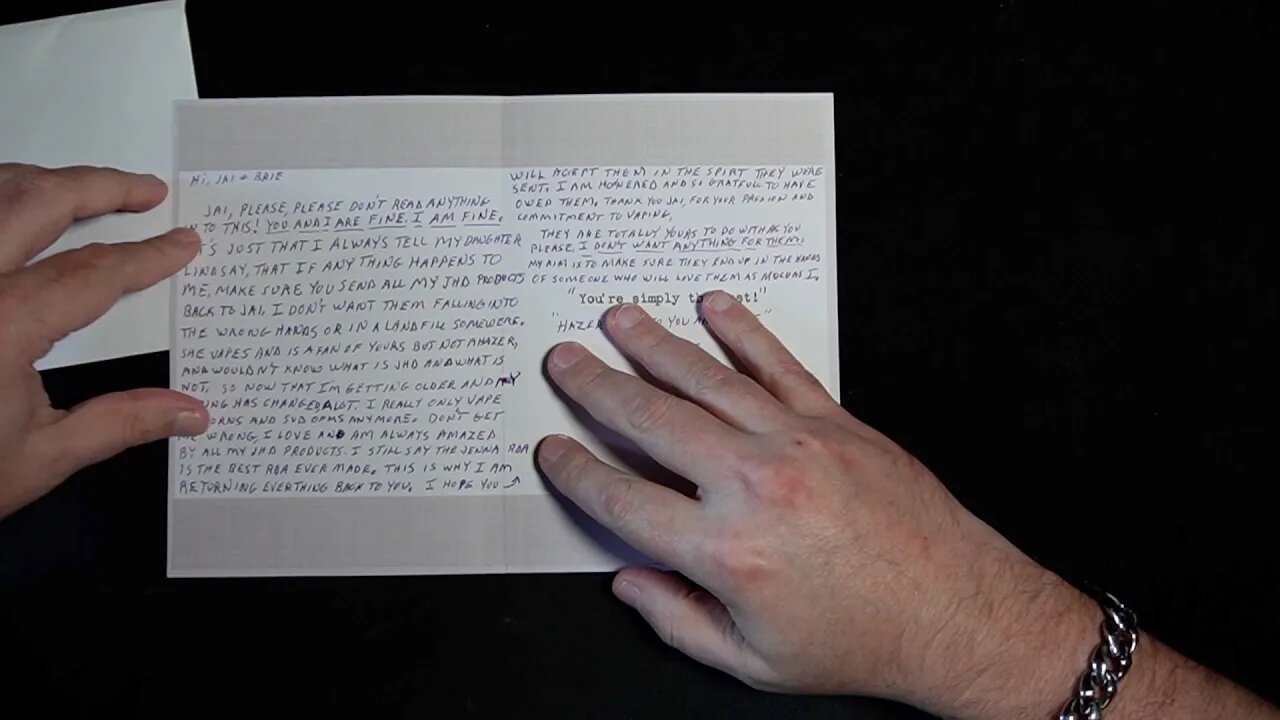 Hi, JAI & BRIE
JAI, PLEASE, PLEASE DON'T READ ANYTHING
IN TO THIS! YOU AND I ARE FINE. I AM FINE.
IT'S JUST THAT I ALWAYS TELL MY DAUGHTER
LINDSAY, THAT IF ANY THING HAPPENS TO
ME, MAKE SURE YOU SEND ALL MY JHD PRODUCTS
BACK TO JAI. I DON'T WANT THEM FALLING INTO
THE WRONG HANDS OR IN A LANDFILL SOMEWERE.
SHE VAPES AND IS A FAN OF YOURS BUT NOT A HAZER,
AND WOULDN'T KNOW WHAT IS JHD AND WHAT IS
NOT. SO NOW THAT I'M GETTING OLDER AND MY
HAS CHANGED ALOT. I REALLY ONLY VAPE
AND SUB OHMS ANYMORE. DON'T GET
ME WRONG, I LOVE AND AM ALWAYS AMAZED
BY ALL MY JHD PRODUCTS. I STILL SAY THE JENNA RDA
IS THE BEST RDA EVER MADE. THIS IS WHY I AM
RETURNING EVERTHING BACK TO YOU. I HOPE YOU →
WILL ACCEPT THEM IN THE SPIRT THEY WERE
SENT. I AM HONERED AND SO GRATEFUL TO HAVE
OWED THEM. THANK YOU JAI, FOR YOUR PASSION AND
COMMITMENT TO VAPING.
THEY ARE TOTALLY YOURS TO DO WITH AS YOU
PLEASE, I DON'T WANT ANYTHING FOR THEM.
MY AIM IS TO MAKE SURE THEY END UP IN THE HANDS
OF SOMEONE WHO WILL LOVE THEM AS MUCH AS I.
"You're simply the best!"
"HAZER TO YOU